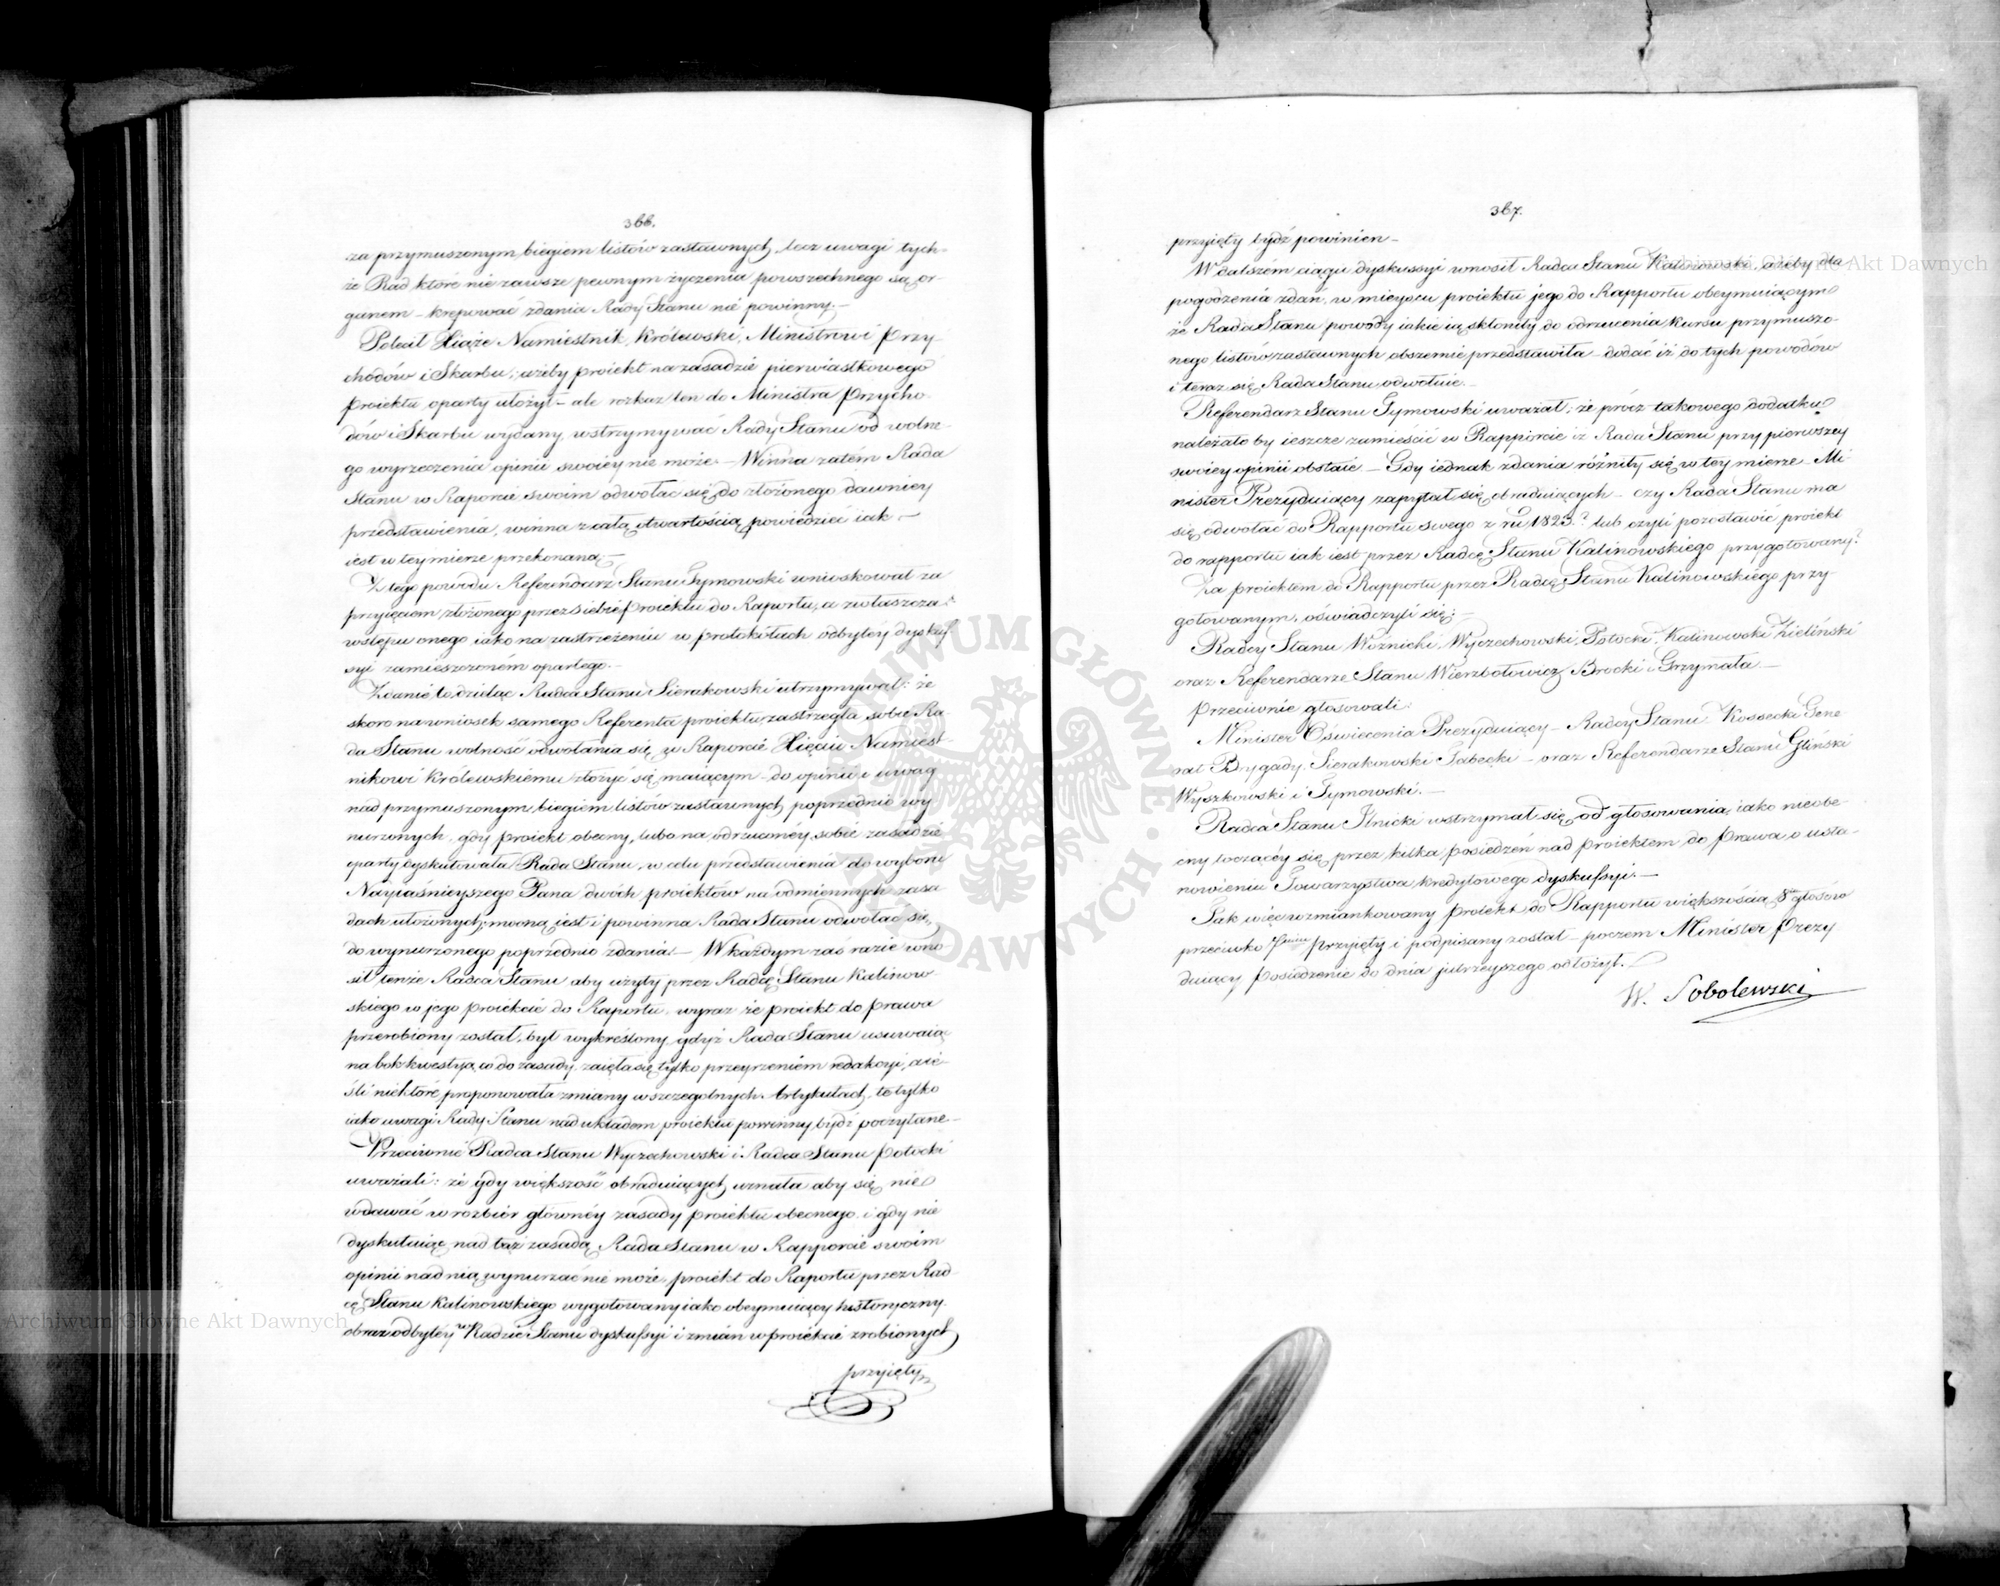 366.
za przymuszonym biegiem listów zastawnych, lecz uwagi tych-
że Rad które nie zawsze pewnym życzenia powszechnego są or-
ganem – krępować zdania Rady Stanu nie powinny. –
Polecił Xiąże Namiestnik Królewski, Ministrowi Przy-
chodów i Skarbu, ażeby proiekt na zasadzie pierwiastkowego
proiektu oparty ułożył – ale rozkaz ten do Ministra Przycho-
dów i Skarbu wydany, wstrzymywać Rady Stanu od wolne-
go wyrzeczenia opinii swoiey nie może – Winna zatém Rada
Stanu w Raporcie swoim odwołać się do złożonego dawniey
przedstawienia, winna z całą otwartością powiedzieć iak –
iest w tey mierze przekonaną. –
Z tego powodu Referendarz Stanu Tymowski wnioskował za
przyięciem złożonego przez siebie proiektu do Raportu, a zwłaszcza
wstępu onego iako na zastrzeżeniu w protokółach odbytéy dyskus-
syi zamieszczoném opartego. –
Zdanie to dzieląc Radca Stanu Sierakowski utrzymywał: że
skoro na wniosek samego Referenta proiektu, zastrzegła sobie Ra-
da Stanu wolność odwołania się w Raporcie Xięciu Namiest-
nikowi Królewskiemu złożyć się maiącym – do opinii i uwag
nad przymuszonym biegiem listów zastawnych poprzednio wy-
nurzonych, gdy proiekt obecny, lubo na odrzuconéy sobie zasadzie
oparty dyskutowała Rada Stanu, w celu przedstawienia do wyboru
Nayiaśnieyszego Pana dwóch proiektów na odmiennych zasa-
dach ułożonych, mocną iest i powinna Rada Stanu odwołać się
do wynurzonego poprzednio zdania. – W każdym zaś razie wno-
sił tenże Radca Stanu aby użyty przez Radcę Stanu Kalinow-
skiego w jego proiekcie do Raportu, wyraz że proiekt do prawa
przerobiony został, był wykreślony, gdyż Rada Stanu usuwaiąc
na bok kwestyą co do zasady, zaięła się tylko przeyrzeniem redakcyi, a ie-
śli niektóre proponowała zmiany w szczególnych Artykułach, te tylko
iako uwagi Rady Stanu nad układem proiektu powinny bydź poczytane –
Przeciwnie Radca Stanu Wyczechowski i Radca Stanu Potocki
uważali: że gdy większość obraduiących uznała aby się nie
wdawać w rozbiór głównéy zasady proiektu obecnego, i gdy nie
dyskutuiąc nad tąż zasadą, Rada Stanu w Rapporcie swoim
opinii nad nią wynurzać nie może, proiekt do Raportu przez Rad-
cę Stanu Kalinowskiego wygotowany iako obeymuiący historyczny
obraz odbytéy w Radzie Stanu dyskussyi i zmian w proiekcie zrobionych
przyięty
367.
przyięty bydź powinien –
W dalszém ciągu dyskussyi wnosił Radca Stanu Kalinowski, ażeby dla
pogodzenia zdań, w mieyscu proiektu jego do Rapportu obeymuiącym
że Rada Stanu powody iakie ią skłoniły do odrzucenia kursu przymuszo-
nego listów zastawnych obszernie przedstawiła – dodać iż do tych powodów
i teraz się Rada Stanu odwołuie. –
Referendarz Stanu Tymowski uważał: że prócz takowego dodatku
należałoby ieszcze zamieścić w Rapporcie iż Rada Stanu przy pierwszey
swoiey opinii obstaie – Gdy iednak zdania różniły się w tey mierze – Mi-
nister Prezyduiący zapytał się obraduiących – czy Rada Stanu ma
się odwołać do Rapportu swego z ru 1823.? lub czyli pozostawić proiekt
do rapportu iak iest przez Radcę Stanu Kalinowskiego przygotowany?
Za proiektem do Rapportu przez Radcę Stanu Kalinowskiego przy-
gotowanym, oświadczyli się: –
Radcy Stanu Woźnicki, Wyczechowski, Potocki, Kalinowski Zieliński
oraz Referendarze Stanu Wierzbołowicz Brocki i Grzymała –
Przeciwnie głosowali:
Minister Oświecenia Prezyduiący – Radcy Stanu Kossecki Gene-
rał Brygady, Sierakowski Tabęcki – oraz Referendarze Stanu Gliński
Wyszkowski i Tymowski. –
Radca Stanu Ilnicki wstrzymał się od głosowania, iako nieobe-
cny toczącéy się przez kilka posiedzeń nad proiektem do prawa o usta-
nowieniu Towarzystwa kredytowego dyskussyi. –
Tak więc wzmiankowany proiekt do Rapportu większością 8. głosów
przeciwko 7miu przyięty i podpisany został – poczem Minister Prezy-
duiący posiedzenie do dnia jutrzeyszego odłożył.
W. Sobolewski
ARCHIWUM GŁÓWNE AKT DAWNYCH
Archiwum Główne Akt Dawnych
Archiwum Główne Akt Dawnych